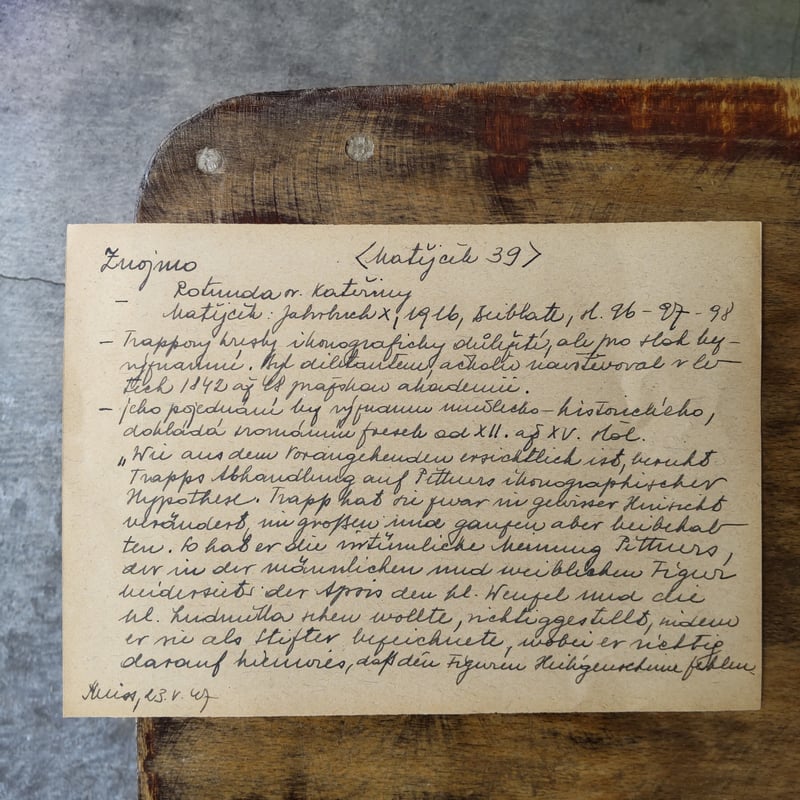 Znojmo <Matějček 39>
– Rotunda sv. Kateřiny
Matějček: Jahrbuch X, 1916, Beiblatt, sl. 96 – 97 – 98
– Trappovy kresby ikonograficky důležité, ale pro sloh bez-
významné. Byl diletantem, ačkoliv navštěvoval v le-
tech 1842 až 48 pražskou akademii.
– jeho pojednání bez významu umělecko-historického,
dokládá srovnáním fresek od XII. až XV. stol.
„Wie aus dem Vorangehenden ersichtlich ist, beruht
Trapps Abhandlung auf Pittners ikonographischer
Hypothese. Trapp hat sie zwar in gewisser Hinsicht
verändert, im großen und ganzen aber beibehal-
ten. So hat er die irrtümliche Meinung Pittners,
der in der männlichen und weiblichen Figur
beiderseits der Apsis den hl. Wenzel und die
hl. Ludmilla sehen wollte, richtiggestellt, indem
er sie als Stifter bezeichnete, wobei er richtig
darauf hinwies, daß den Figuren Heiligenscheine fehlen.
23. V. 47